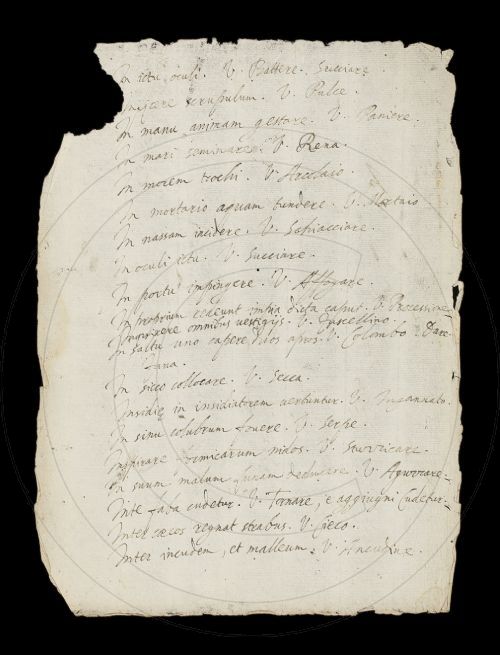 In ictu oculi. V. Battere. Succiare.
Iniicere scrupulum. V. Pulce.
In manu animam gestare. V. Paniere.
In mari seminare. V. Rena.
In morem trochi. V. Arcolaio.
In mortario aquam tundere. V. Mortaio
In nassam incidere. V. Schiacciare.
In oculi ictu. V. Succiare.
In portu impingere. V. Affogare.
In proprium redeunt impia dicta caput. V. Processione
Inquirere omnibus vestigijs. V. Fuscellino.
In saltu uno capere duos apros. V. Colombo. Dare.
fava.
In sicco collocare. V. Secca.
Insidie in insidiatorem vertuntur. V. Ingannato.
In sinu colubrum fovere. V. Serpe.
Inspirare formicarum nidos. V. Stuzzicare.
In suum malum lunam deducere. V.
Inte faba cudetur. V. Tornare, e aggiugni cudetur.
Inter cæcos regnat strabus. V. Cieco.
Inter incudem, et malleum. V. Ancudine.